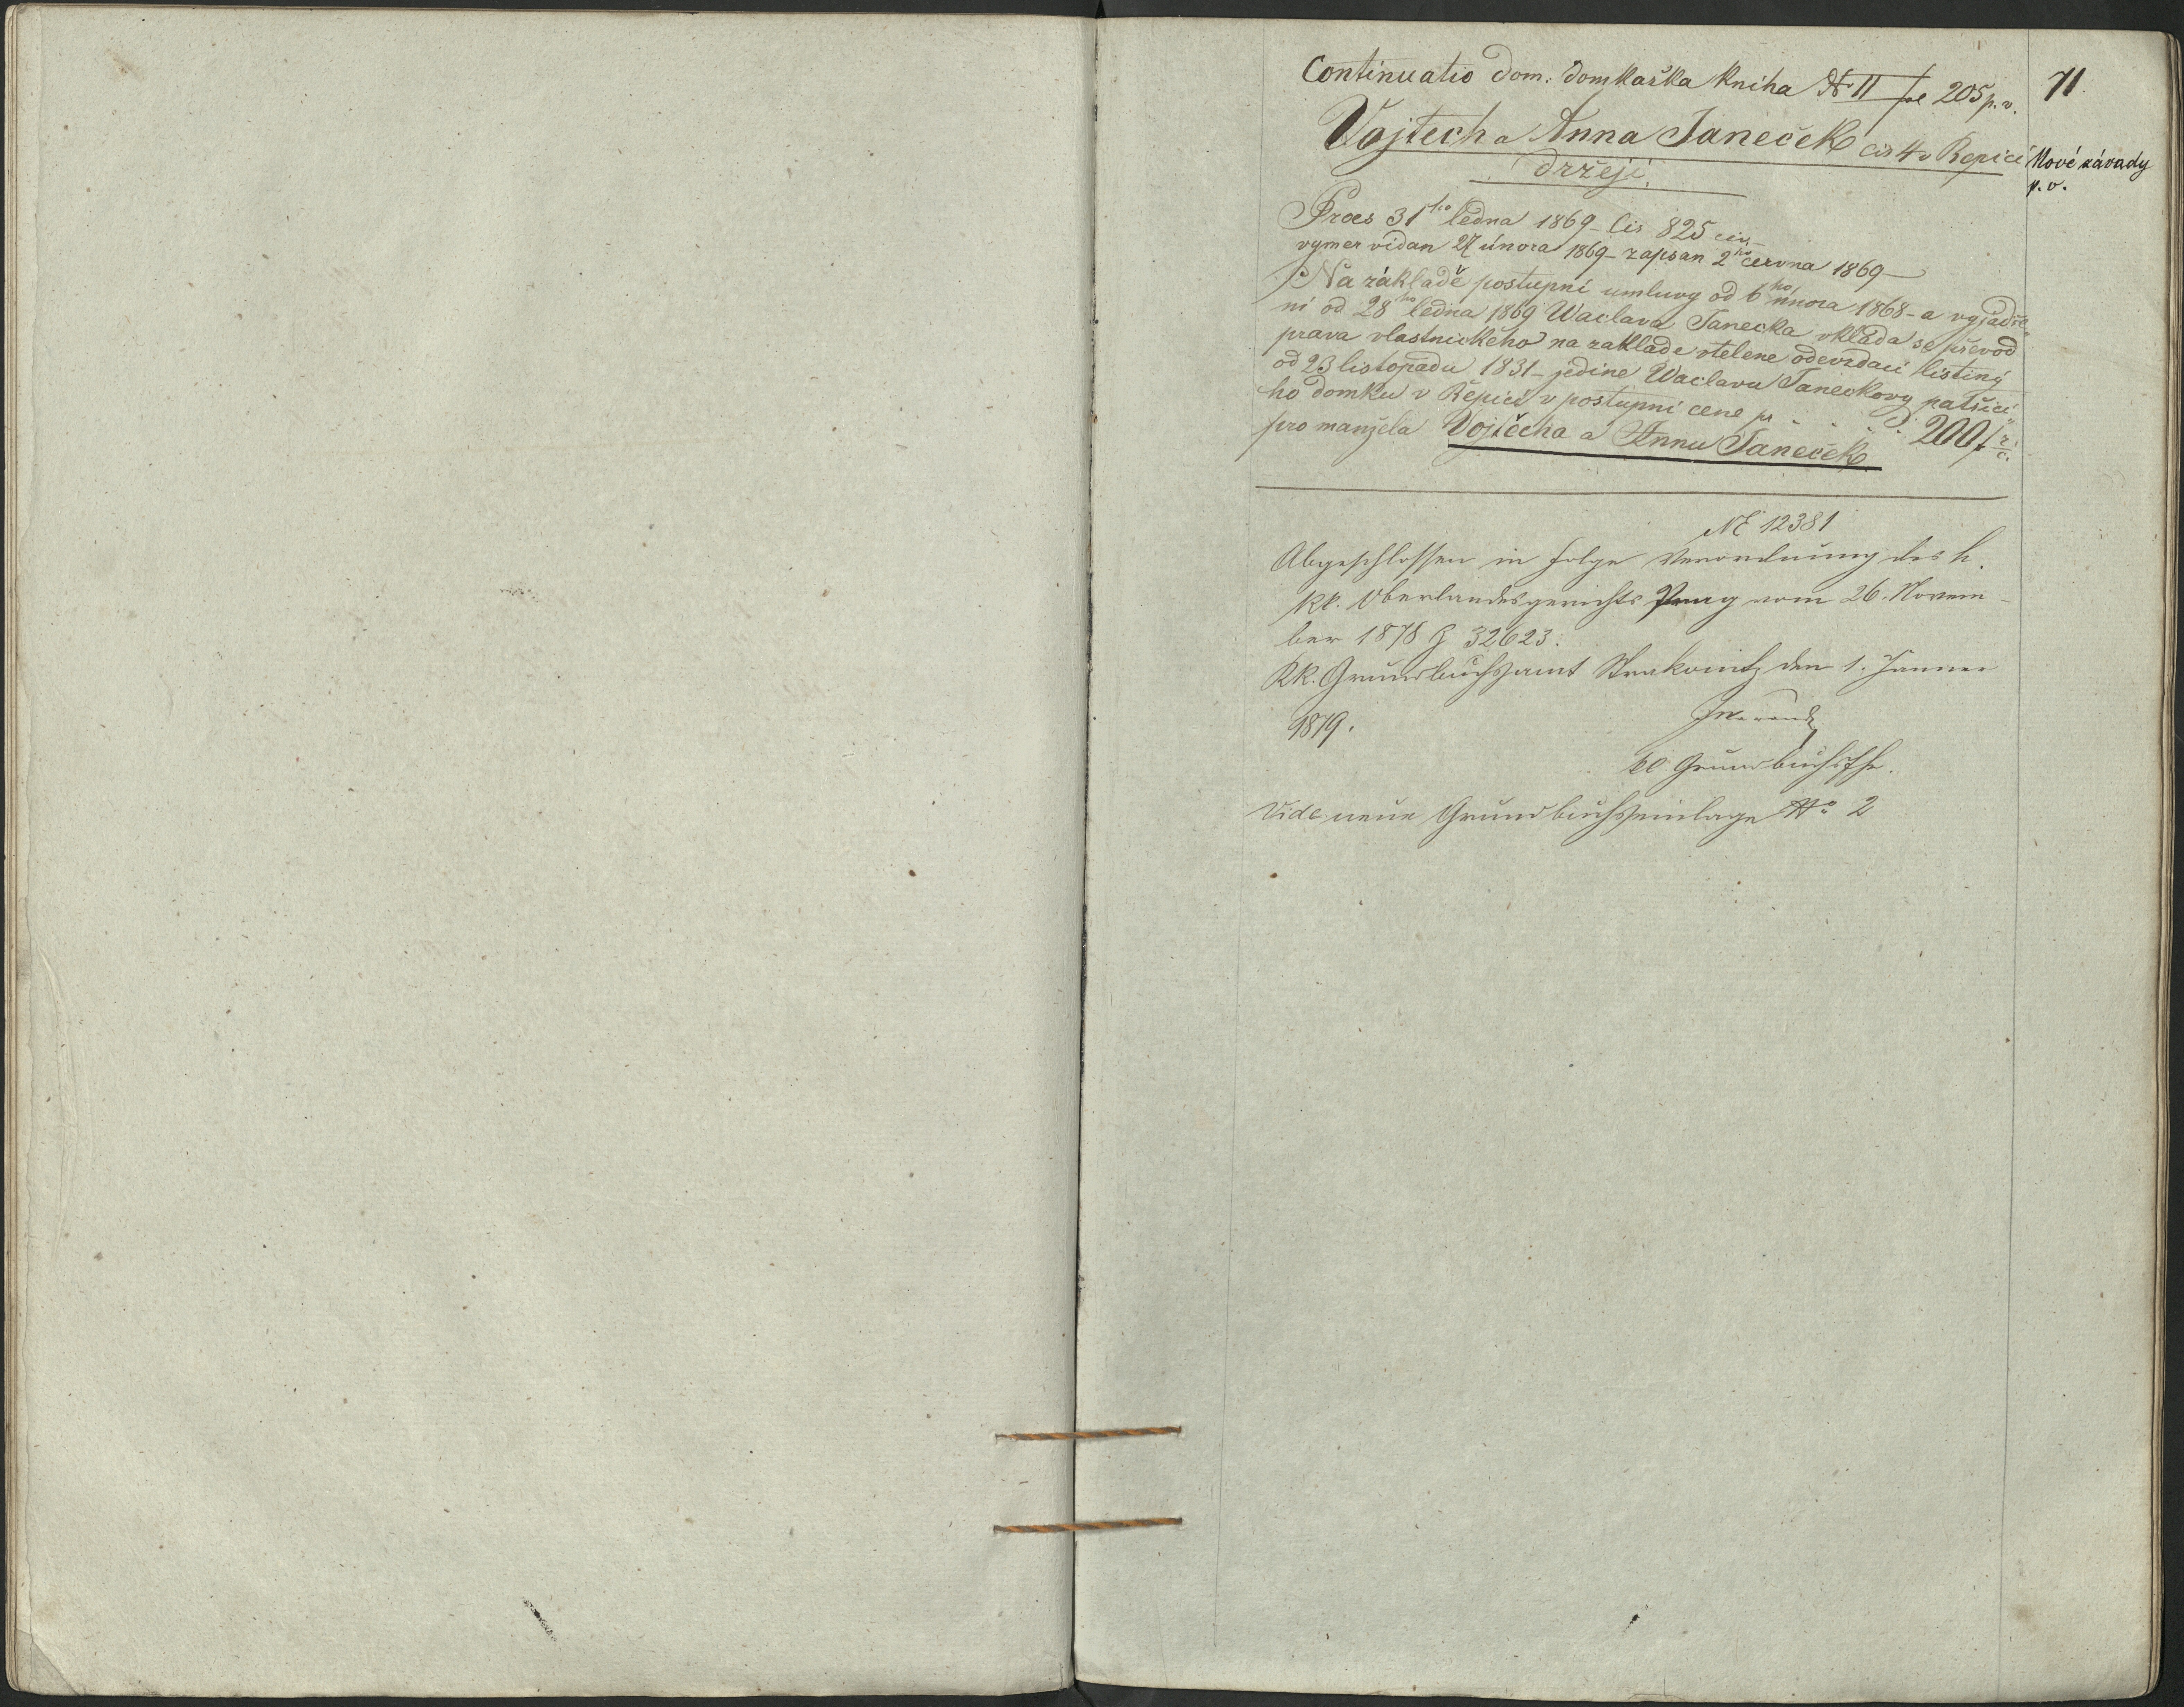 Continuatio dom: domkařka kniha N II fol 205 p. v.
71
Vojtech a Anna Janeček cis 4 v Repici
držeji.
Nové závady
p. v.
Praes 31ho ledna 1869 - cis 825 civ. -
vymer vidan 27 února 1869 - zapsan 2ho června 1869 -
Na základě postupní umluvy od 6ho unora 1868 - a vyjadře-
ni od 28ho ledna 1869 Waclava Janecka vklada se převod
prava vlastnickeho na zaklade vtelene odevzdaci listiny
od 23 listopadu 1831 - jedine Waclavu Janeckovy patřici-
ho domku v Řepici v postupni cene pr . . . . 200 f
pro manžela Vojtěcha a Annu Janeček
NE 12381
Abgeschlossen in Folge Verordnung des h.
kk. Oberlandesgerichts Prag vom 26. Novem-
ber 1878 Z 32623.
KK. Grundbuchsamt Strakonitz den 1. Jänner
1879.
Grundbuchsfhr.
Vide neue Grundbuchseinlage No 2